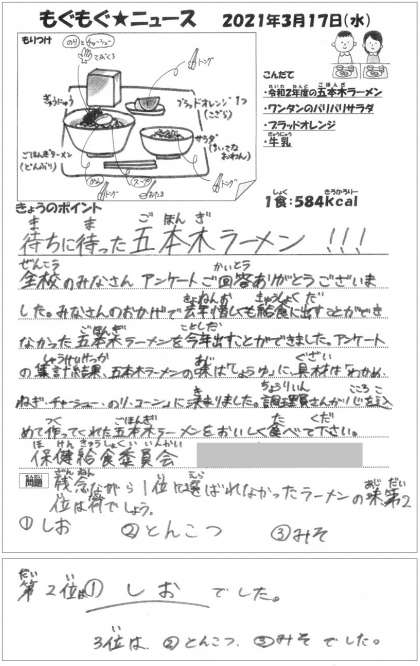 もぐもぐ★ニュース 2021年3月17日(水)
もりつけ
のり チャーシュー
手でおく
トング
ぎゅうにゅう
ブラッドオレンジ 1つ
(こざら)
サラダ
(ちいさなおわん)
トング
ごほんぎラーメン
(どんぶり)
めん スープ
トング おたま
こんだて
・令和2年度の五本木ラーメン
・ワンタンのパリパリサラダ
・ブラッドオレンジ
・牛乳
1食:584kcal
きょうのポイント
待ちに待った五本木ラーメン!!!
全校のみなさん アンケートご回答ありがとうございま
した。みなさんのおかげで去年惜しくも給食に出すことができ
なかった五本木ラーメンを今年出すことができました。アンケート
の集計結果、五本木ラーメンの味は「しょうゆ」に、具材は「わかめ・
ねぎ・チャーシュー・のり・コーン」に決まりました。調理員さんが心を込
めて作ってくれた五本木ラーメンをおいしく食べて下さい。
保健給食委員会
問題 残念ながら1位に選ばれなかったラーメンの味、第2
位は何でしょう。
①しお ②とんこつ ③みそ
第2位は① しお でした。
3位は、②とんこつ、③みそでした。